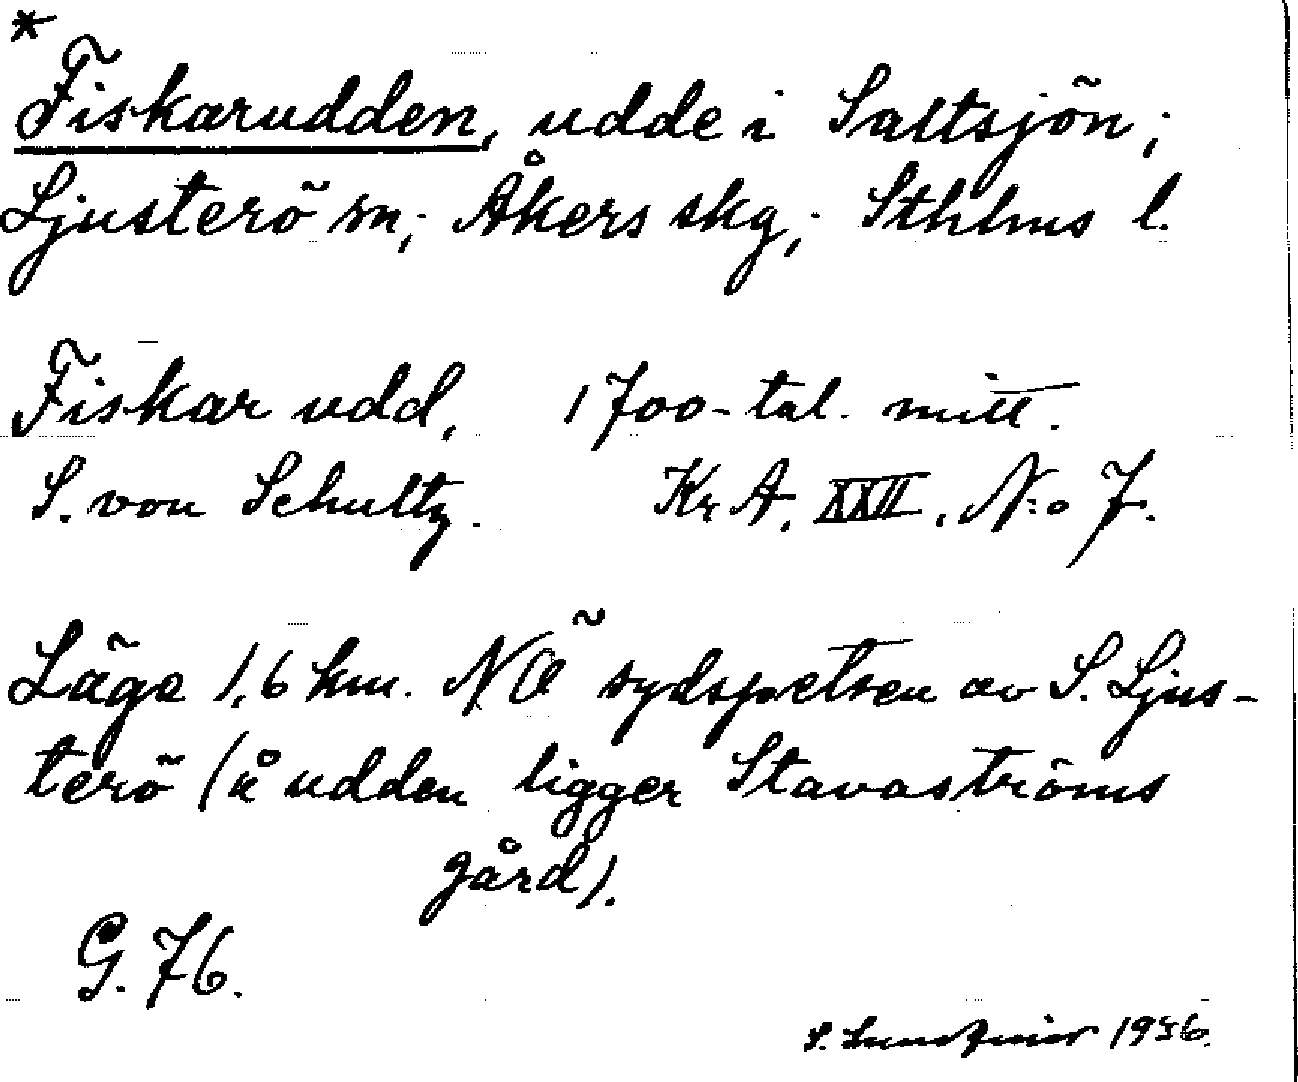 *
Fiskarudden, udde i Saltsjön;
Ljusterö sn; Åkers skg; Sthlms l.
Fiskar udd, 1700-tal. mitt.
S. von Schultz. Kr A. XXII. N:o 7.
Läge 1,6 km. NÖ sydspetsen av S. Ljus-
terö (å udden ligger Stavaströms
gård).
G. 76.
S. 1936.